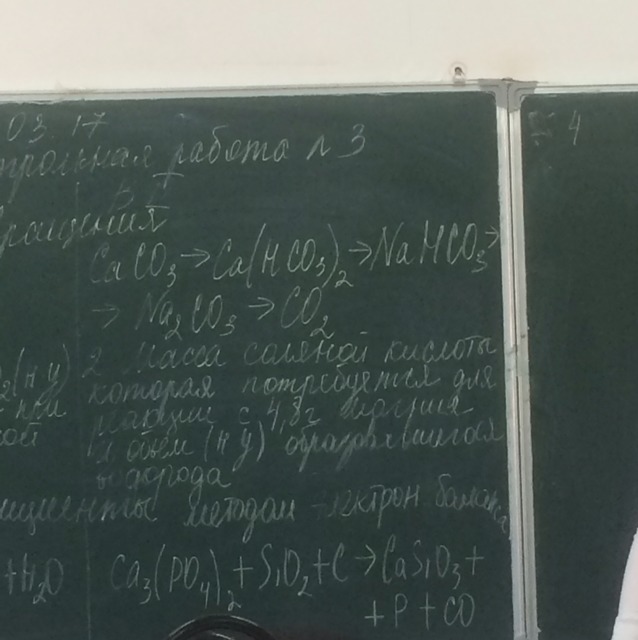 03 17
рольная работа N 3
CaCO₃ → Ca(HCO₃)₂ → NaHCO₃ →
→ Na₂CO₃ → CO₂
2 Масса соляной кислоты
которая потребуется для
реакции с 4,8г магния
и объем (н у) образовавшегося
водорода
методом электрон балан
+H₂O Ca₃(PO₄)₂ + SiO₂ + C → CaSiO₃ +
+ P + CO
4